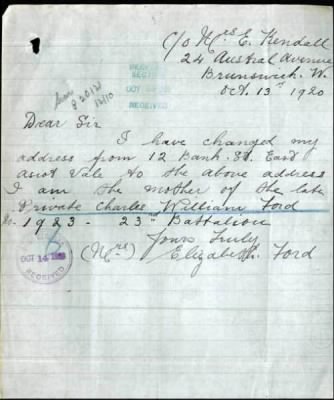 C/o Mrs E. Kendall
24 Austral Avenue
Brunswick. W.
Oct. 13th 1920
12/10
OCT 14
RECEIVED
Dear Sir
I have changed my
address from 12 Bank. St. East
Ascot Vale to the above address
I am the mother of the late
Private Charles William Ford
No- 1923 - 23rd Battalion
Yours Truly
(Mrs) Elizabeth. Ford
OCT 14 1920
RECEIVED